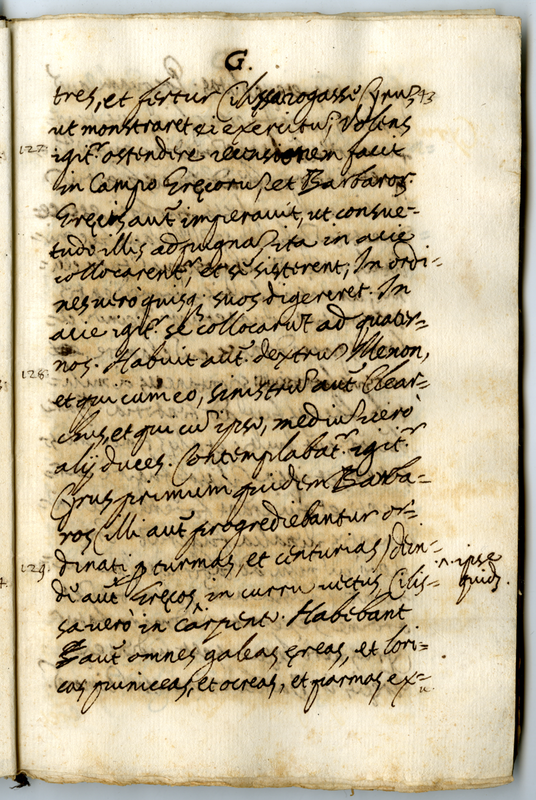 G.
tres, et fertur Cilissa rogasse Cyrũ, 43
ut monstraret ei exercitũ; Volens
127. igit.r ostendere recensionem facit
in Campo Gręcorũ, et Barbaror.
Gręcis aut̃ imperavit, ut consue=
tudo illis ad pugnã, ita in acie
collocarent.r, et sẽ sisterent; In ordi=
nes vero quisq; suos digereret. In
acie igit.r sẽ collocarũt ad quater=
nos. Habuit aut̃ dextrũ Menon,
128. et qui cum eo, sinistrũ aut̃ Clear=
chus, et qui cũ ipso, mediũ verò
alij duces. Contemplabat.r igit.r
Cyrus primum quidem Barba=
ros (illi aut̃ progrediebantur or=
129. dinati p turmas, et centurias) dein=
dè aut̃ Gręcos, ^ in curru vectus, Cilis=
^ ipse
quid.
sa verò in carpento. Habebant
aut̃ omnes galeas ęreas, et lori=
cas puniceas, et ocreas, et parmas ex=